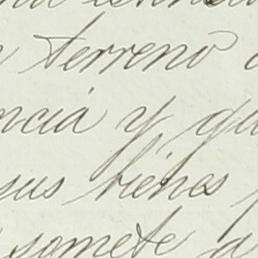 terreno
ncia y qu
sus bienes
somete a